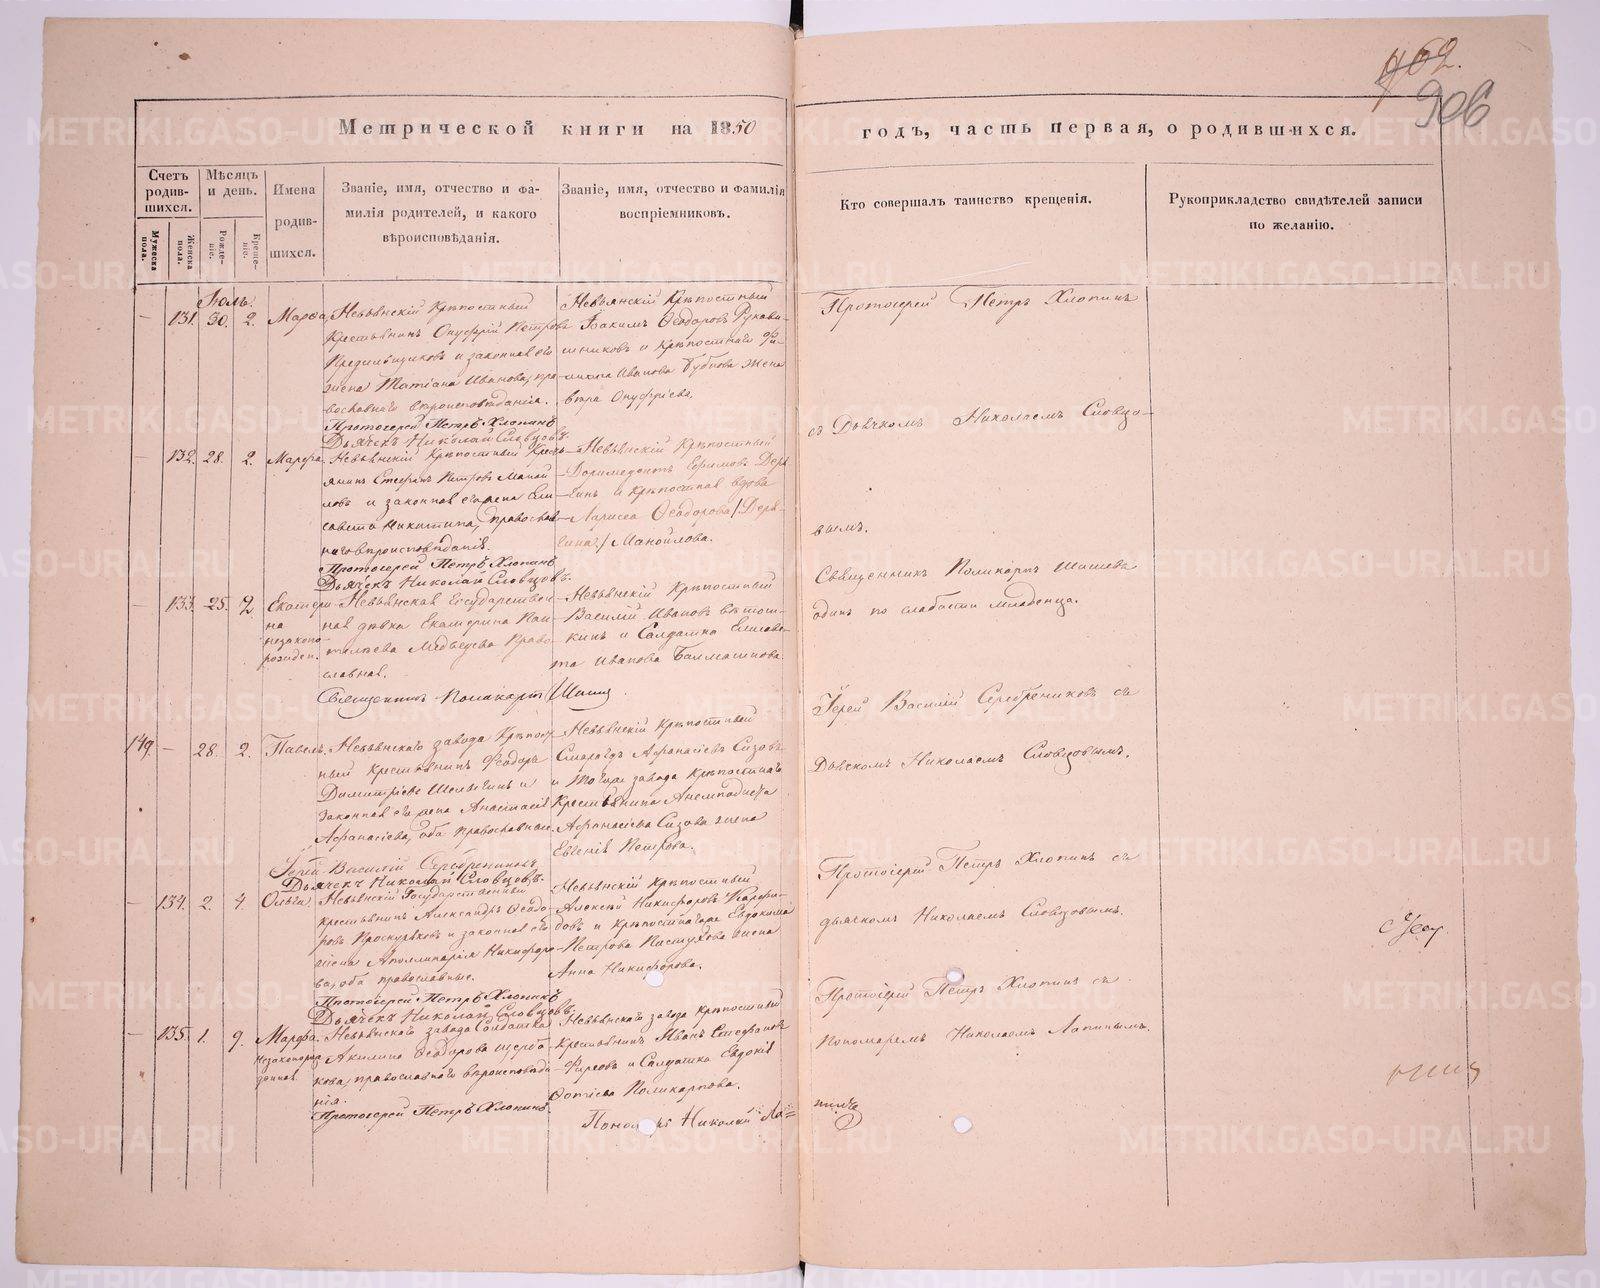 462.
906
Метрической книги на 1850
годъ, часть первая, о родившихся.
Счетъ родив-шихся.
Мужеска пола.
Женска пола.
Мѣсяцъ и день.
Рожде-ніе.
Креще-ніе.
Имена родив-шихся.
Званіе, имя, отчество и фа-
милія родителей, и какого
вѣроисповѣданія.
Званіе, имя, отчество и фамилія
воспріемниковъ.
Кто совершалъ таинство крещенія.
Рукоприкладство свидѣтелей записи
по желанію.
Іюль.
— 131. 30. 2. Марѳа,
Невьянскій Крѣпостный
Крестьянинъ Онуфрій Петровъ
и законная его
жена Татіана Иванова, пра-
вославнаго вѣроисповѣданія.
Протоіерей Петръ Хлопинъ
Дьячекъ Николай Словцовъ.
Невьянскій Крѣпостный
Іоакимъ Ѳеодоровъ Рукави-
шниковъ и Крѣпостнаго Фи-
липпа Иванова Бубнова жена
Вѣра Онуфріева,
Протоіерей Петръ Хлопинъ
съ Дьячкомъ Николаемъ Словцо-
вымъ.
— 132. 28. 2. Марфа.
Невьянскій Крѣпостный Кресть-
янинъ Стефанъ Петровъ Маной-
ловъ и законная его жена Ели-
савета Никитина, православ-
наго вѣроисповѣданія.
Протоіерей Петръ Хлопинъ
Дьячекъ Николай Словцовъ.
Невьянскій Крѣпостный
Доримедонтъ Ефимовъ Деря-
бинъ и Крѣпостная вдова
Лариса Ѳеодорова /Деря-
бина/ Манойлова.
Священникъ Поликарпъ Шишевъ
одинъ по слабости младенца.
— 133. 25. 2. Екатери-
на
незаконо-
рожден.
Невьянская Государствен-
ная дѣвка Екатерина Пан-
телѣева Медвѣдева Право-
славная.
Священникъ Поликарпъ Шишевъ
Невьянскій Крѣпостный
Василій Ивановъ Вѣтош-
кинъ и Салдатка Елисаве-
та Иванова Балмашнова.
Іерей Василій Серебрениковъ съ
Дьячкомъ Николаемъ Словцовымъ.
149. — 28. 2. Павелъ.
Невьянскаго завода Крѣпост-
ный Крестьянинъ Ѳеодоръ
Димитріевъ Шелыгинъ и
законная его жена Анастасія
Афанасіева, оба православные.
Іерей Василій Серебрениковъ
Дьячекъ Николай Словцовъ.
Невьянскій Крѣпостный
Смарагдъ Афанасіевъ Сизовъ
и того же завода Крѣпостнаго
Крестьянина Анемподиста
Афанасіева Сизова жена
Евгенія Петрова.
Протоіерей Петръ Хлопинъ съ
дьячкомъ Николаемъ Словцовымъ.
— 134. 2. 4. Ольга,
Невьянскій Государственный
крестьянинъ Александръ Ѳеодо-
ровъ Проскуряковъ и законная его
жена Аполлинарія Никифоро-
ва, оба православные.
Протоіерей Петръ Хлопинъ
Дьячекъ Николай Словцовъ.
Невьянскій Крѣпостный
Алексѣй Никифоровъ Карфи-
довъ и Крѣпостнаго Евдокима
Петрова Пастухова жена
Анна Никифорова.
Протоіерей Петръ Хлопинъ съ
Пономаремъ Николаемъ Лапинымъ.
— 135. 1. 9. Марфа.
Незаконорож-
денная
Невьянскаго завода Солдатка
Акилина Ѳеодорова Щерба-
кова, православнаго вѣроисповѣда-
нія.
Протоіерей Петръ Хлопинъ.
Невьянскаго завода Крѣпостный
Крестьянинъ Иванъ Стефановъ
Фирсовъ и Салдатка Евдокія
Фотіева Поликарпова.
Пономарь Николай Ла=
пинъ